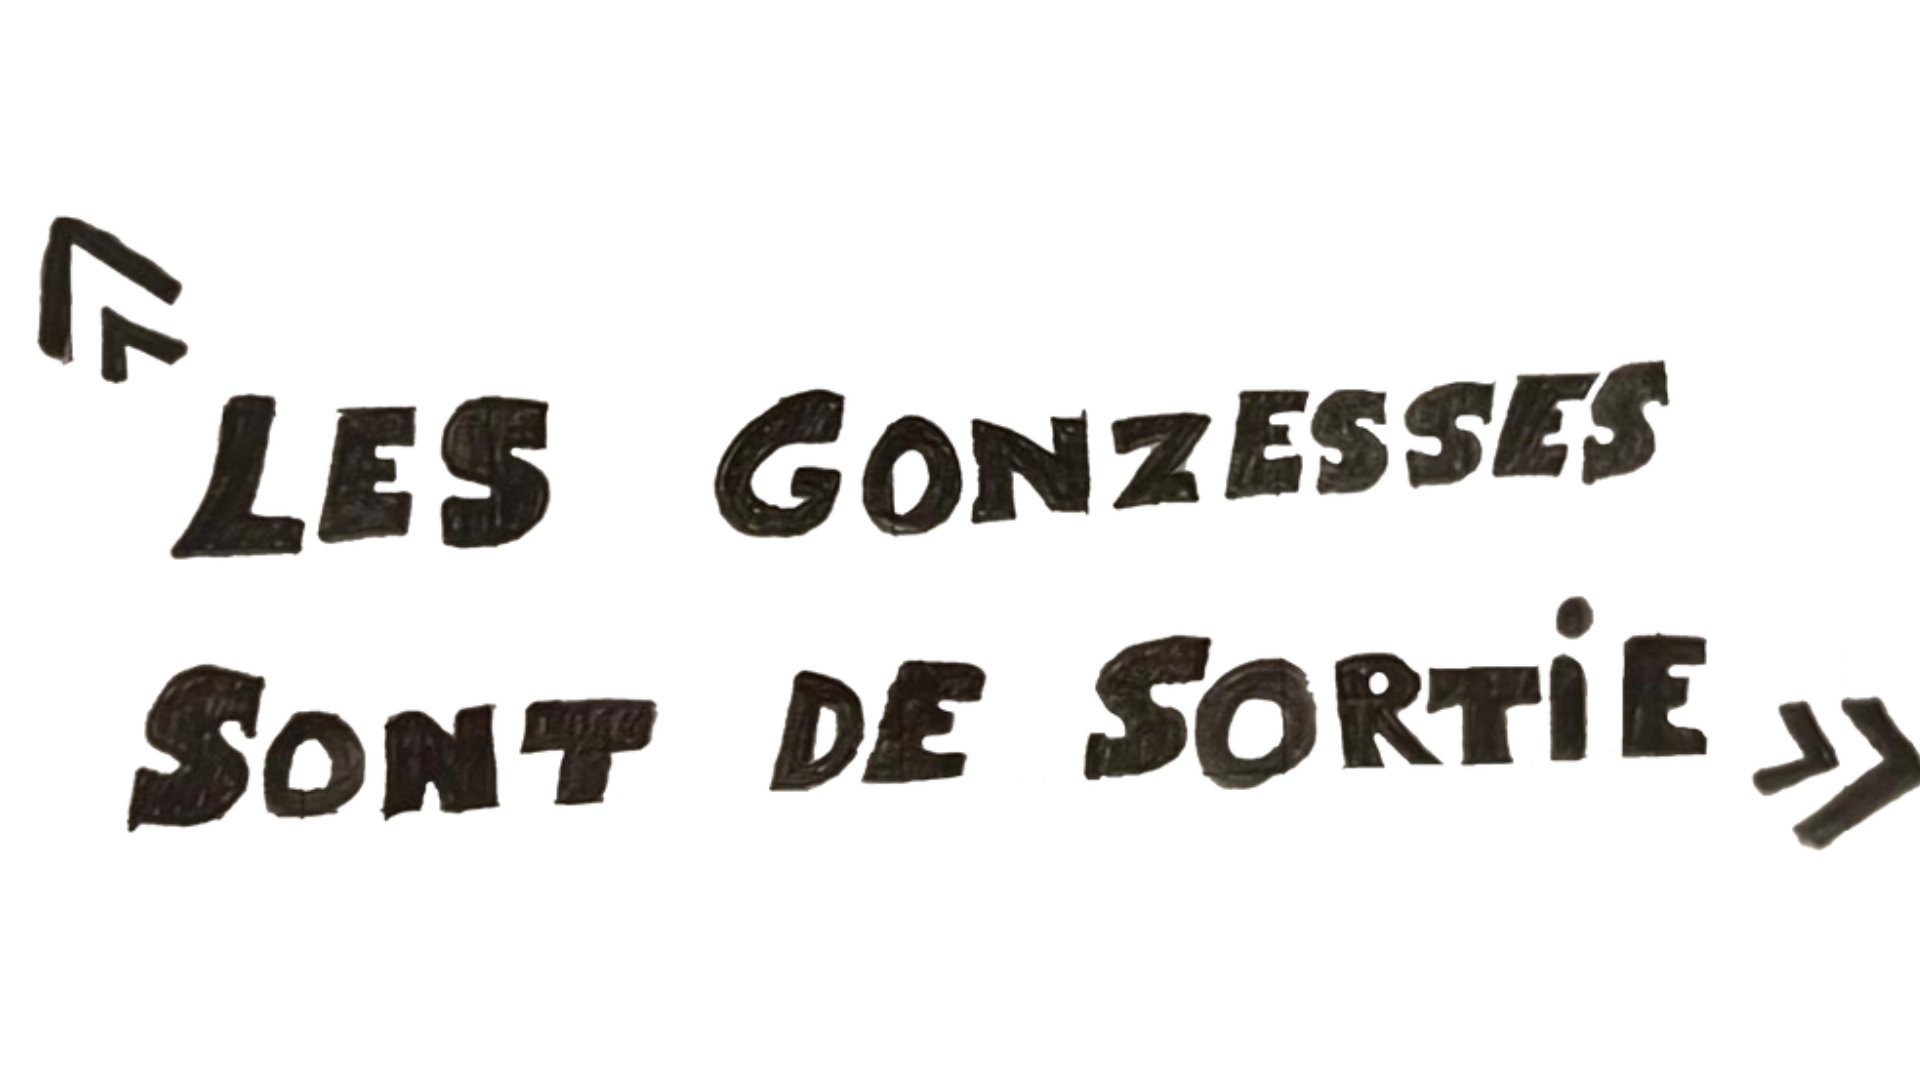 « LES GONZESSES
SONT DE SORTiE »